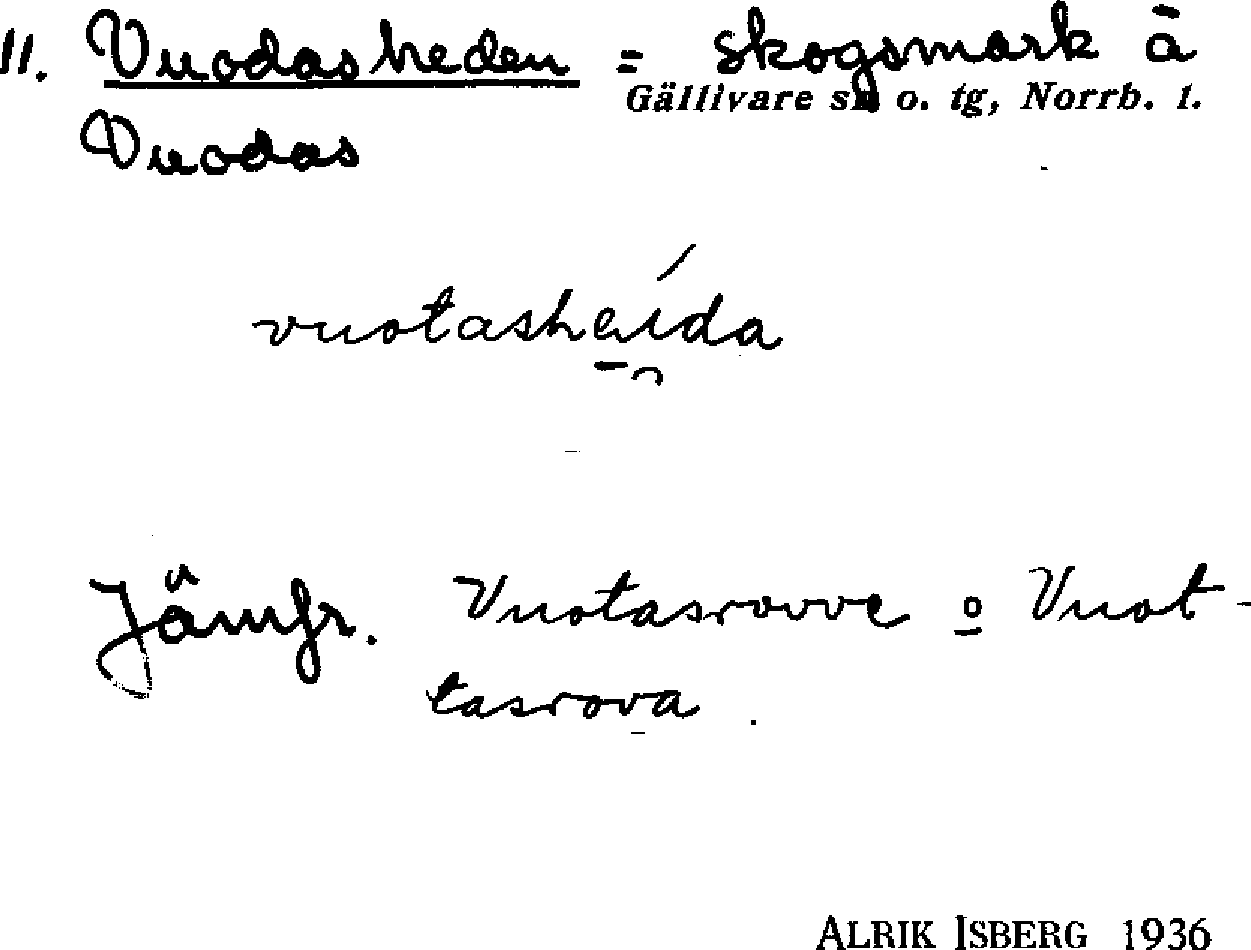 11. Vuodasheden = skogsmark å
Gällivare sn o. tg, Norrb. l.
Vuodas
vuotasheída
Jämfr. Vuotasrovve o Vuot-
tasrova.
ALRIK ISBERG 1936